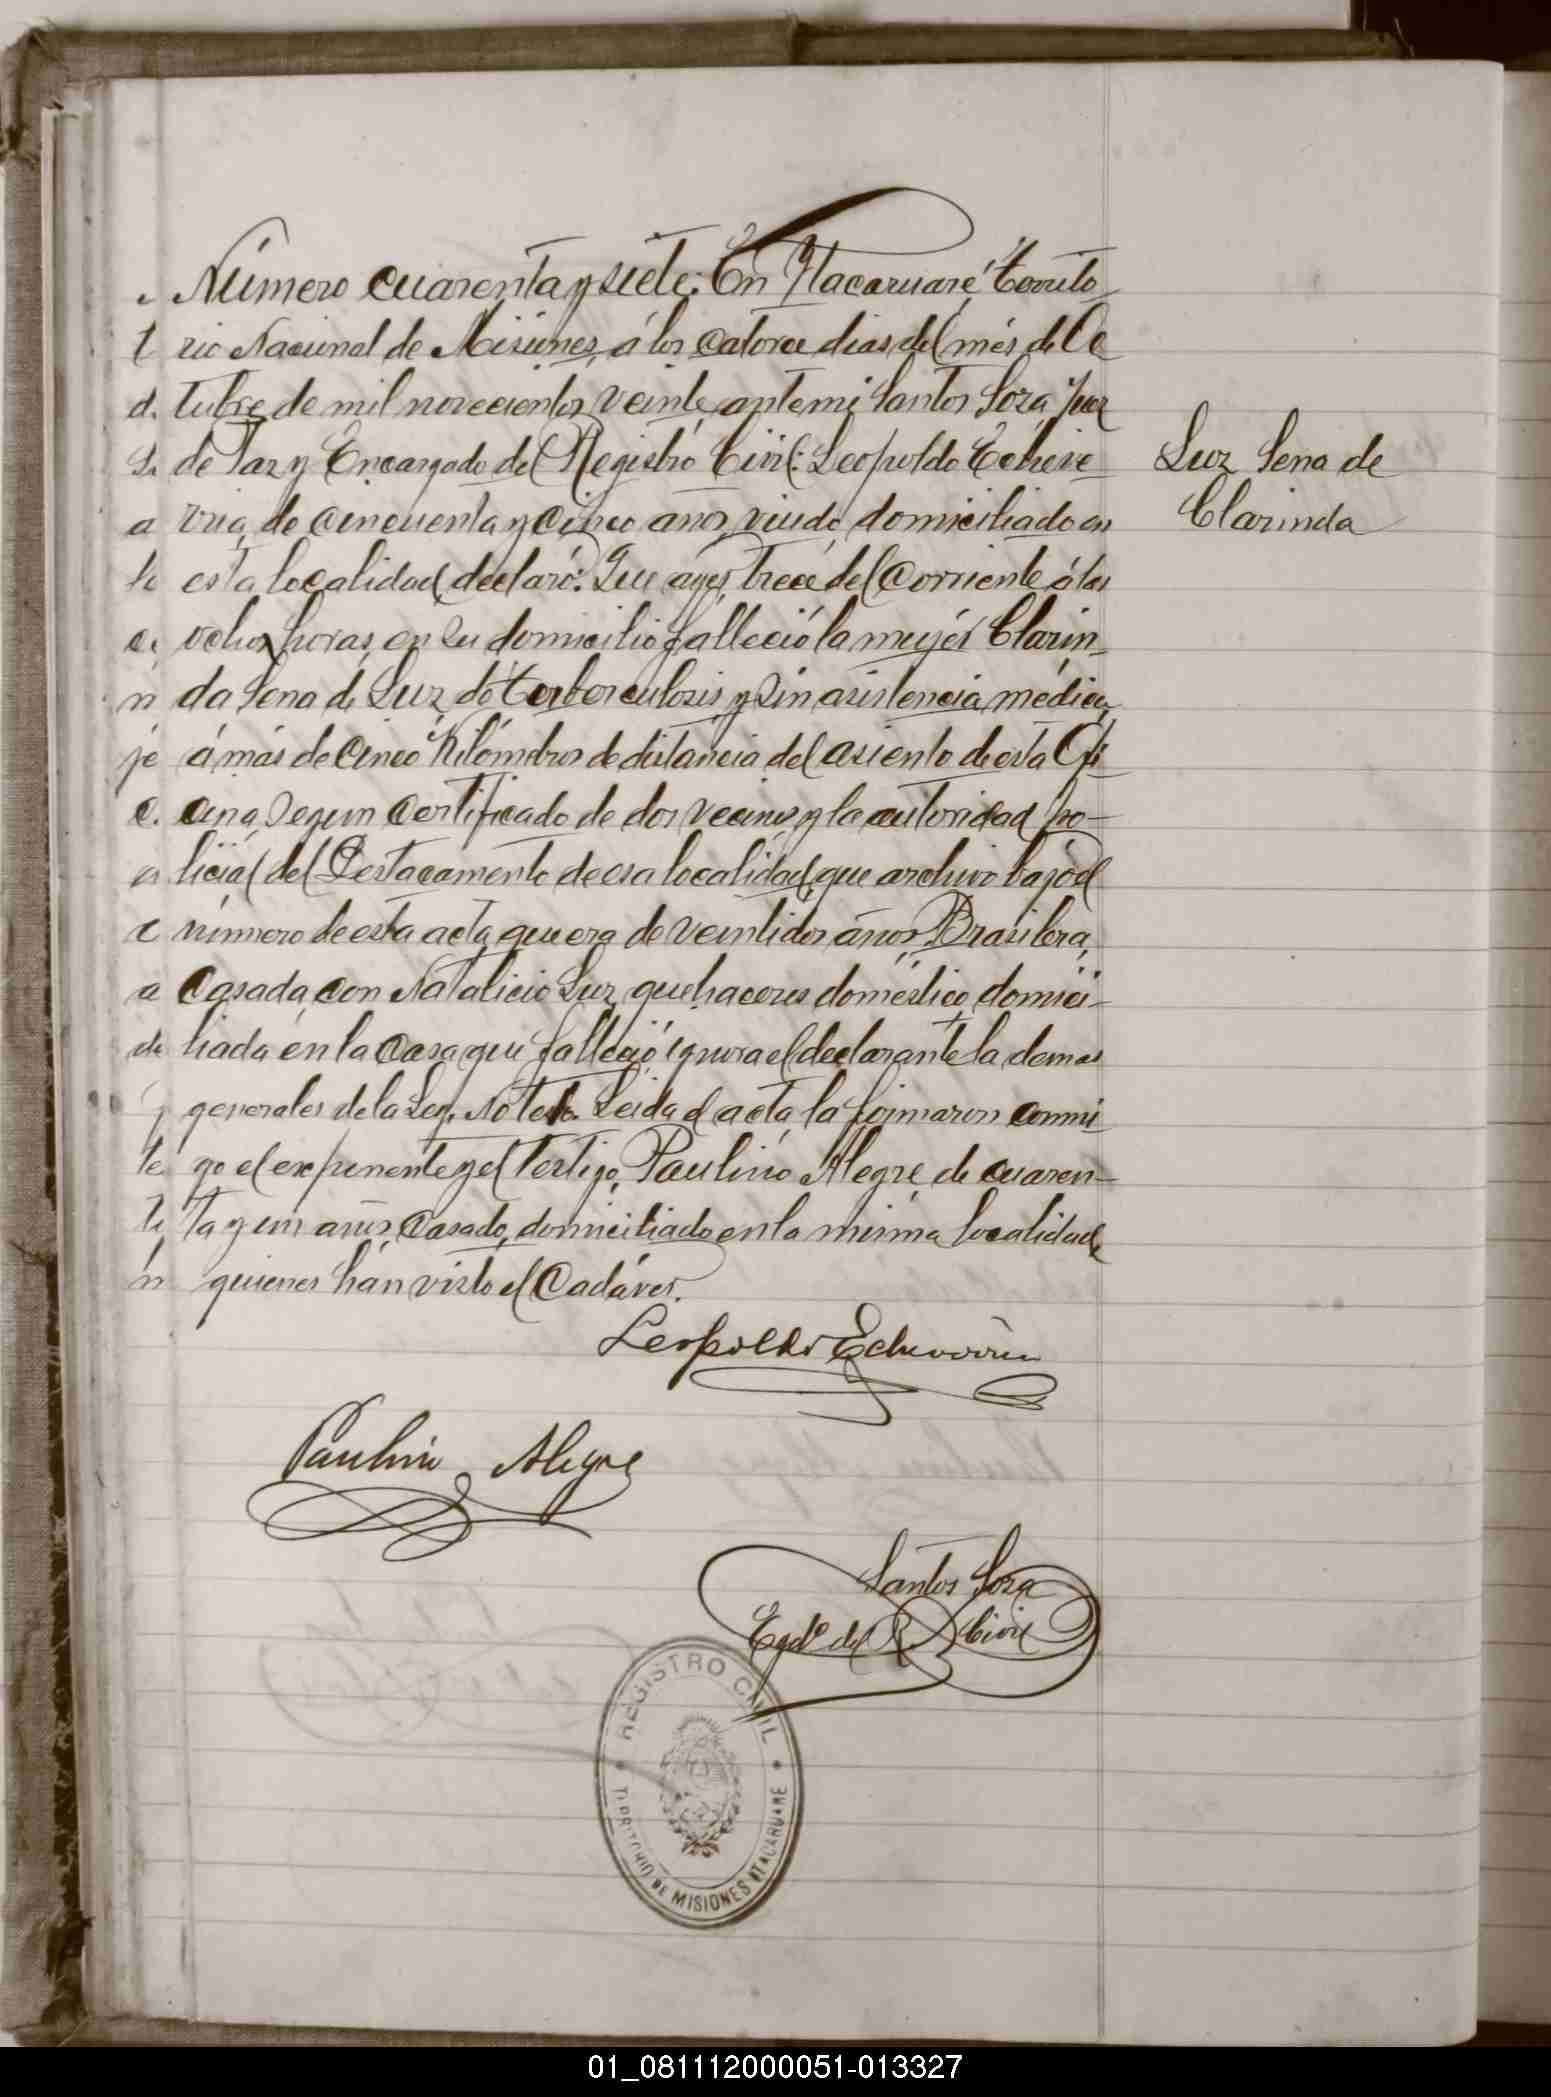 Número cuarenta y siete: En Ytacaruaré, Territo
rio Nacional de Misiones, á los catorce dias del més de Oc
tubre de mil novecientos veinte, ante mi Santos Soza Juez
de Paz y Encargado del Registro Civil: Leopoldo Echeve
rria, de cincuenta y cinco años, viudo, domiciliado en
esta localidad, declaró: Que ayer, trece del corriente á las
ocho horas, en su domicilio falleció la mujér Clarin-
da Sena de Luz, de terborculosis y sin asistencia médica,
á más de cinco Kilómetros de distancia del asiento de esta Ofi-
cina, segun certificado de dos vecinos y la autoridad po-
licial del Destacamento de esa localidad, que archivo bajo el
número de esta acta, que era de veintidos años, Brasilera,
casada, con Natalicio Luz, quehaceres doméstico, domici-
liada en la casa que falleció ignora el declarante la demas
generales de la Ley. No testó. Leida el acta, la firmaron conmi-
go el exponente y el testigo, Paulino Alegre, de cuaren-
ta y un años, casado, domiciliado en la misma localidad,
quienes hán visto el cadáver.
Luz Sena de
Clarinda
Leopoldo Echeverria
Paulino Alegre
Santos Soza
Egdo del R. Civil
REGISTRO CIVIL
TERRITORIO DE MISIONES ITACARUARE
01_081112000051-013327